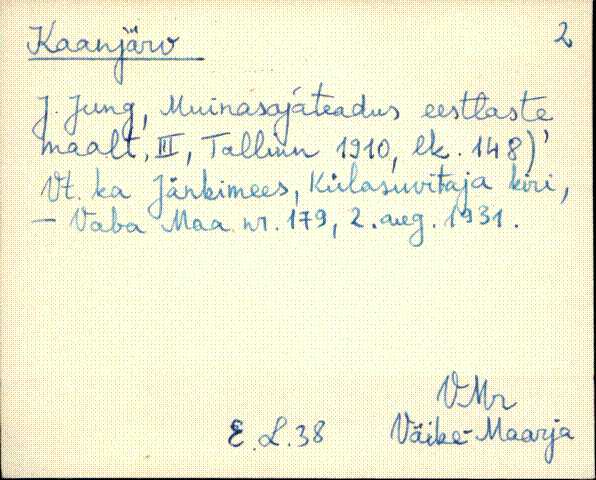 Kaanjärv 2
J. Jung, Muinasajateadus eestlaste
maalt, III, Tallinn 1910, lk. 148)
Vt. ka Jänkimees, Külasuvitaja kiri,
- Vaba Maa nr. 179, 2. aug. 1931.
VMr
E. L. 38 Väike-Maarja